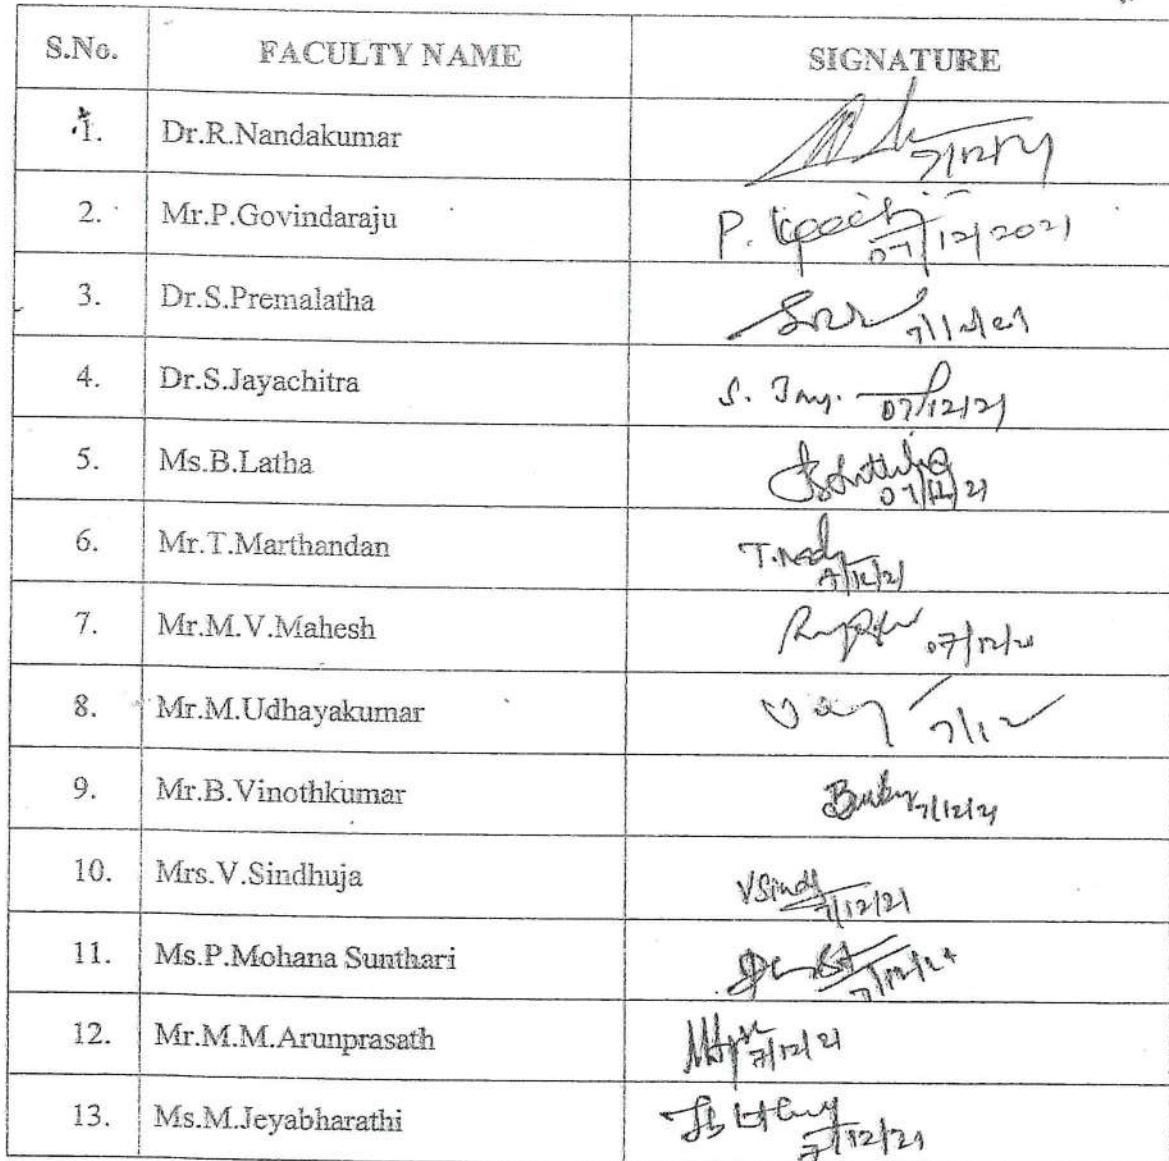 S.No. FACULTY NAME SIGNATURE
1. Dr.R.Nandakumar 7/12/21
2. Mr.P.Govindaraju P. 07/12/2021
3. Dr.S.Premalatha 7/12/21
4. Dr.S.Jayachitra S. Jay. 07/12/21
5. Ms.B.Latha 07/12/21
6. Mr.T.Marthandan 7/12/21
7. Mr.M.V.Mahesh 07/12/21
8. Mr.M.Udhayakumar 7/12
9. Mr.B.Vinothkumar 7/12/21
10. Mrs.V.Sindhuja VSindh 7/12/21
11. Ms.P.Mohana Sunthari 7/12/21
12. Mr.M.M.Arunprasath 7/12/21
13. Ms.M.Jeyabharathi 7/12/21